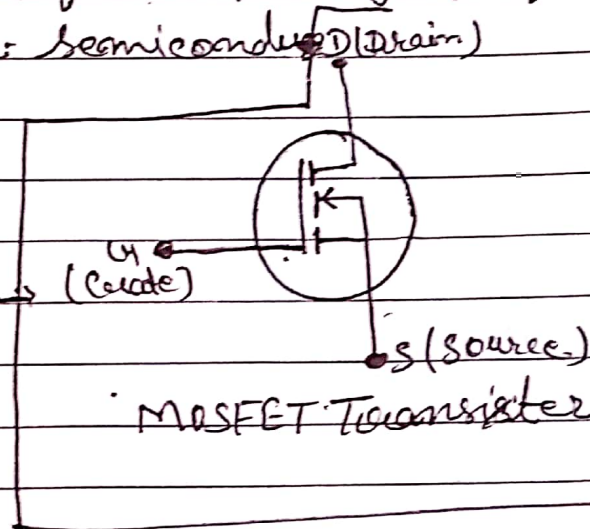 : Semicondu D(Drain)
G
(Gate)
S(Source)
MOSFET Transister